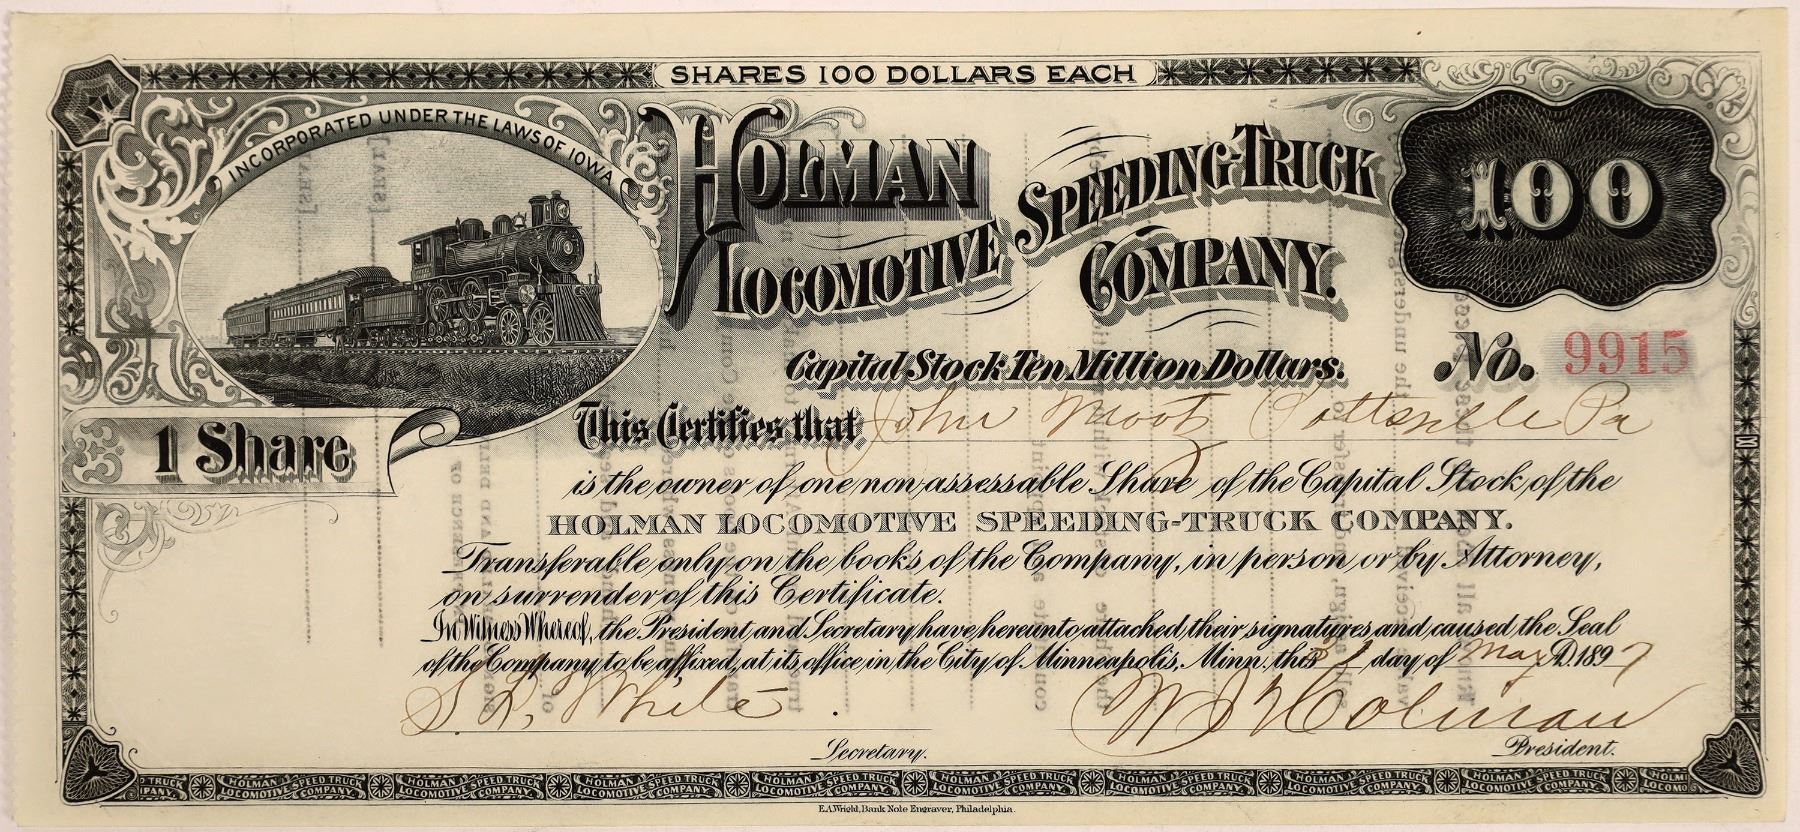 SHARES 100 DOLLARS EACH
INCORPORATED UNDER THE LAWS OF IOWA
HOLMAN
LOCOMOTIVE SPEEDING-TRUCK
COMPANY.
100
Capital Stock Ten Million Dollars.
No. 9915
1 Share
This Certifies that John Mootz Pottsville Pa
is the owner of one non-assessable Share of the Capital Stock, of the
HOLMAN LOCOMOTIVE SPEEDING-TRUCK COMPANY.
Transferable only on the books of the Company, in person or by Attorney,
on surrender of this Certificate.
In Witness Whereof, the President and Secretary have hereunto attached their signatures and caused the Seal
of the Company to be affixed, at its office in the City of Minneapolis, Minn. this day of May A.D. 1897
S. L. White. W J Holman
Secretary. President.
P TRUCK PANY. HOLMAN SPEED TRUCK LOCOMOTIVE COMPANY. HOLMAN SPEED TRUCK LOCOMOTIVE COMPANY. HOLMAN SPEED TRUCK LOCOMOTIVE COMPANY. HOLMAN SPEED TRUCK LOCOMOTIVE COMPANY. HOLMAN SPEED TRUCK LOCOMOTIVE COMPANY. HOLMAN SPEED TRUCK LOCOMOTIVE COMPANY. HOLMAN SPEED TRUCK LOCOMOTIVE COMPANY. HOLMAN SPEED TRUCK LOCOMOTIVE COMPANY. HOLM LOCOMO
E.A. Wright, Bank Note Engraver, Philadelphia.